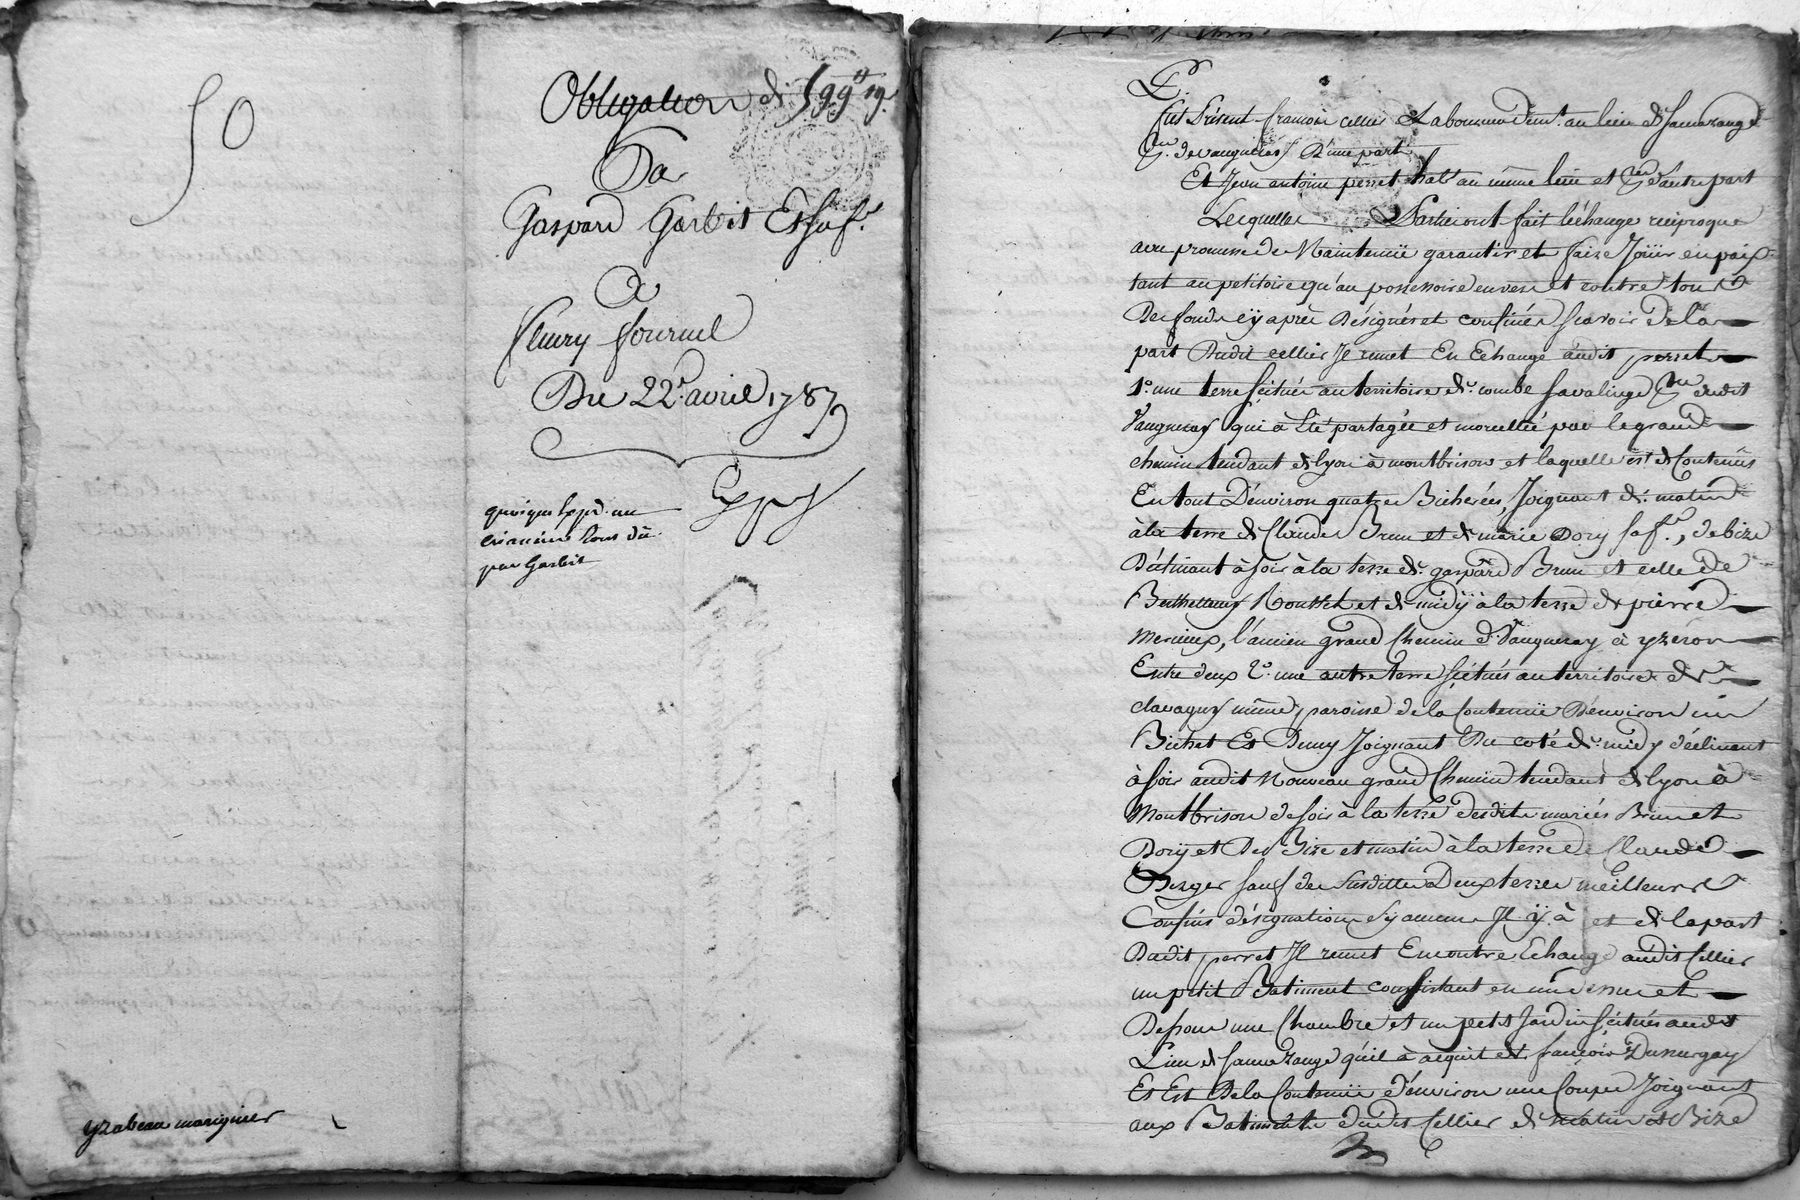 50
Obligation de 599
Da
Gaspard Garbit Et sa f.
A
fleury fournel
Du 22. avril 1787
Exp
quoique Exp. au
créancier lous dû
par Garbit
yzabeau marignier
fut Présent françois cellier Laboureur demt. au lieu de
de vaugneray D'une part
Et Jean antoine perret habt. au même lieu et d'autre part
Lesquelles Parties ont fait léchange réciproque
avec promesse de Maintenüe garantir et faire Joüir en paix
tant au petitoire qu'au possessoire envers et contre tous
Des fonds cy après Désignés et confinés scavoir de la
part Dudit cellier Il remet En Echange audit perret
1.° une terre scituée au territoire de combe savalinge dudit
Vaugneray qui à été partagée et morcellée par le grand
chemin tendant de lyon à montbrison et laquelle est de Contenüe
En tout D'environ quatre Bicherées, Joignant de matin
à la terre de Claude Brun et de marie Dory sa f.e, de bize
Déclinant à soir à la terre de gaspard Brun et celle de
Berthellemy Rousset et de midÿ à la terre de pierre
Merieux, l'ancien grand Chemin de Vaugneray à yzeron
Entre deux 2.° une autre terre scituée au territoire de
clavagny même paroisse de la Contenüe D'environ un
Bichet Et Demy Joignant Du coté de midy déclinant
à soir audit Nouveau grand Chemin tendant de lyon à
Montbrison de soir à la terre desdits mariés Brun et
Dory et De Bize et matin à la terre de Claude
Berger sauf des susdittes Deux terres meilleurs
Confins désignations sy aucuns Il ÿ à et de la part
Dudit perret Il remet En contre Echange audit Cellier
un petit Batiment consistant en un dessus et
Dessous une Chambre et un petit Jardin scitués audit
Lieu de qu'il à acquit de françois
Et Est De la Contenüe d'environ une Coupée Joignant
aux Batiments dudit Cellier de matin et Bize